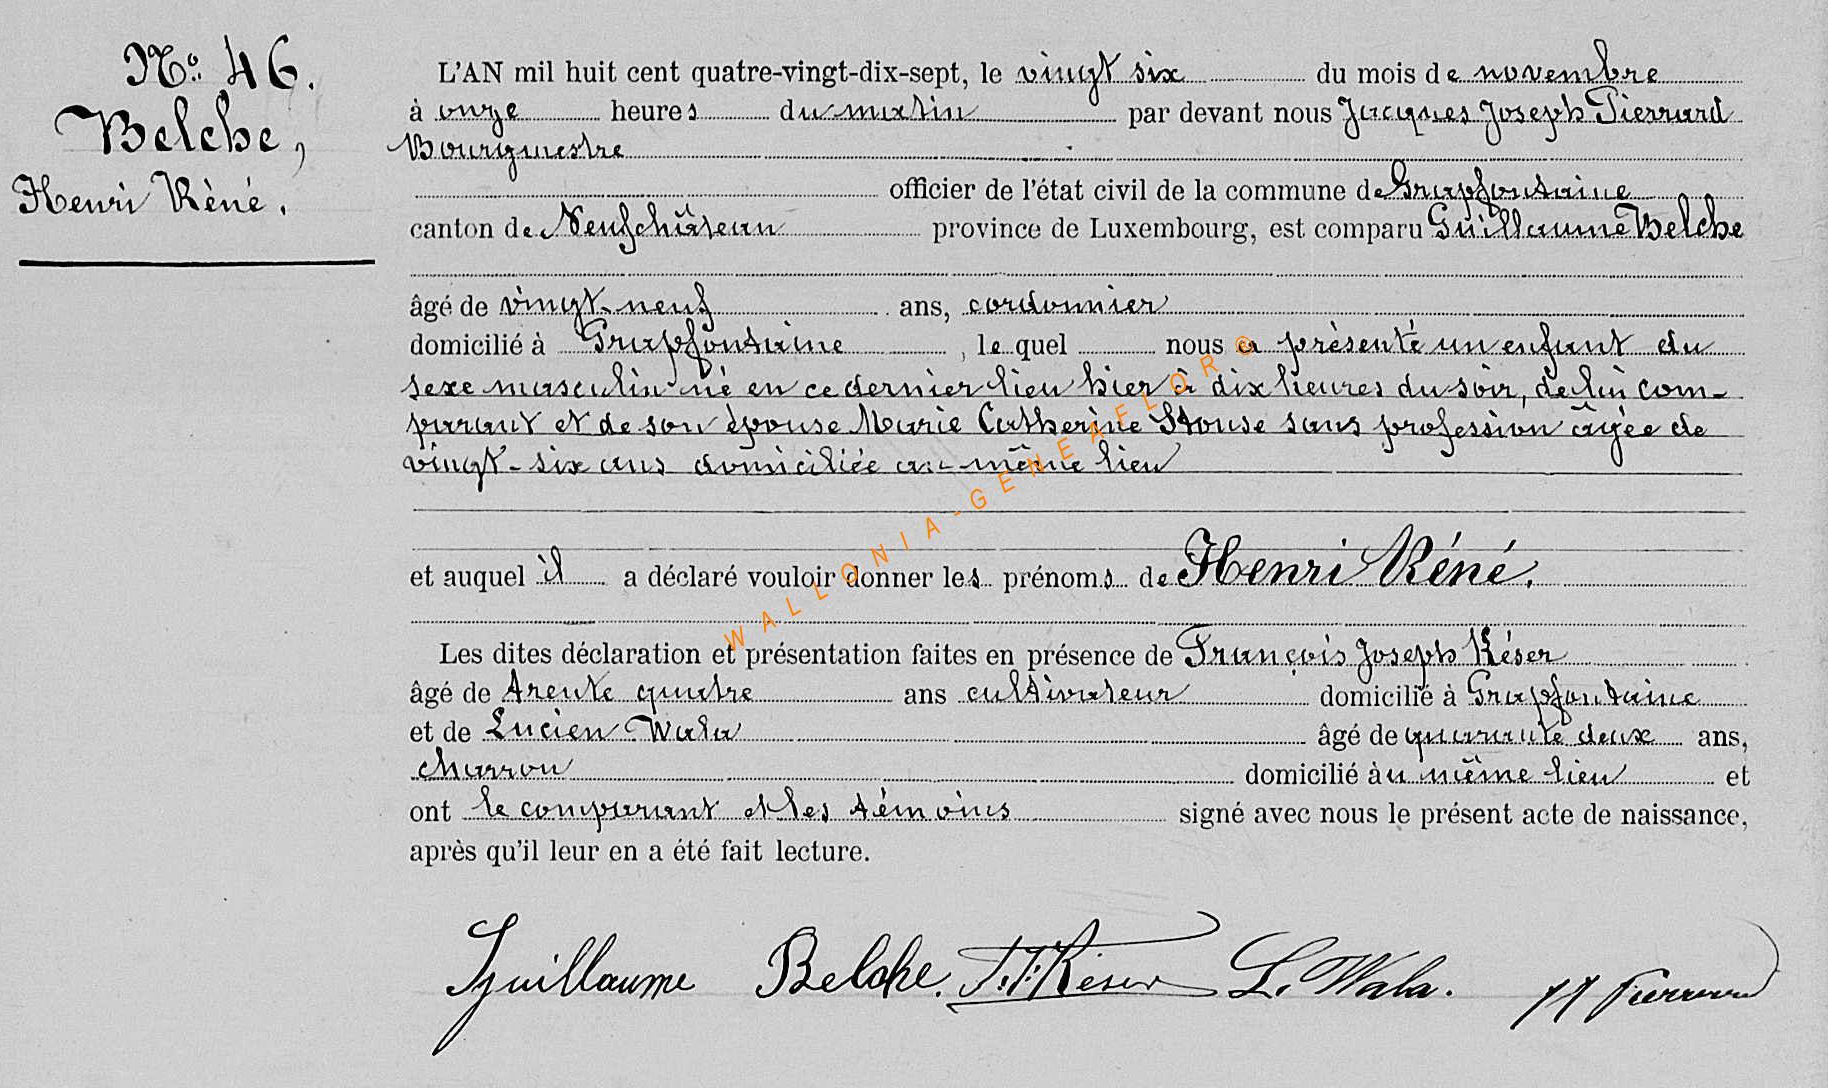 N° 46.
Belche,
Henri Réné.
L'AN mil huit cent quatre-vingt-dix-sept, le vingt six du mois de novembre
à onze heures du matin par devant nous Jacques Joseph Pierrard
Bourgmestre
officier de l'état civil de la commune de Grapfontaine
canton de Neufchâteau province de Luxembourg, est comparu Guillaume Belche
âgé de vingt-neuf ans, cordonnier
domicilié à Grapfontaine, lequel nous a présenté un enfant du
sexe masculin né en ce dernier lieu hier à dix heures du soir, de lui com-
parant et de son épouse Marie Catherine Stouse sans profession âgée de
vingt-six ans domiciliée au même lieu
et auquel il a déclaré vouloir donner les prénoms de Henri Réné.
Les dites déclaration et présentation faites en présence de François Joseph Réser
âgé de trente quatre ans cultivateur domicilié à Grapfontaine
et de Lucien Wala âgé de quarante deux ans,
charron domicilié au même lieu et
ont le comparant et les témoins signé avec nous le présent acte de naissance,
après qu'il leur en a été fait lecture.
Guillaume Belche. F. J. Réser L. Wala. JJ Pierrard
WALLONIA-GENEAELOR©